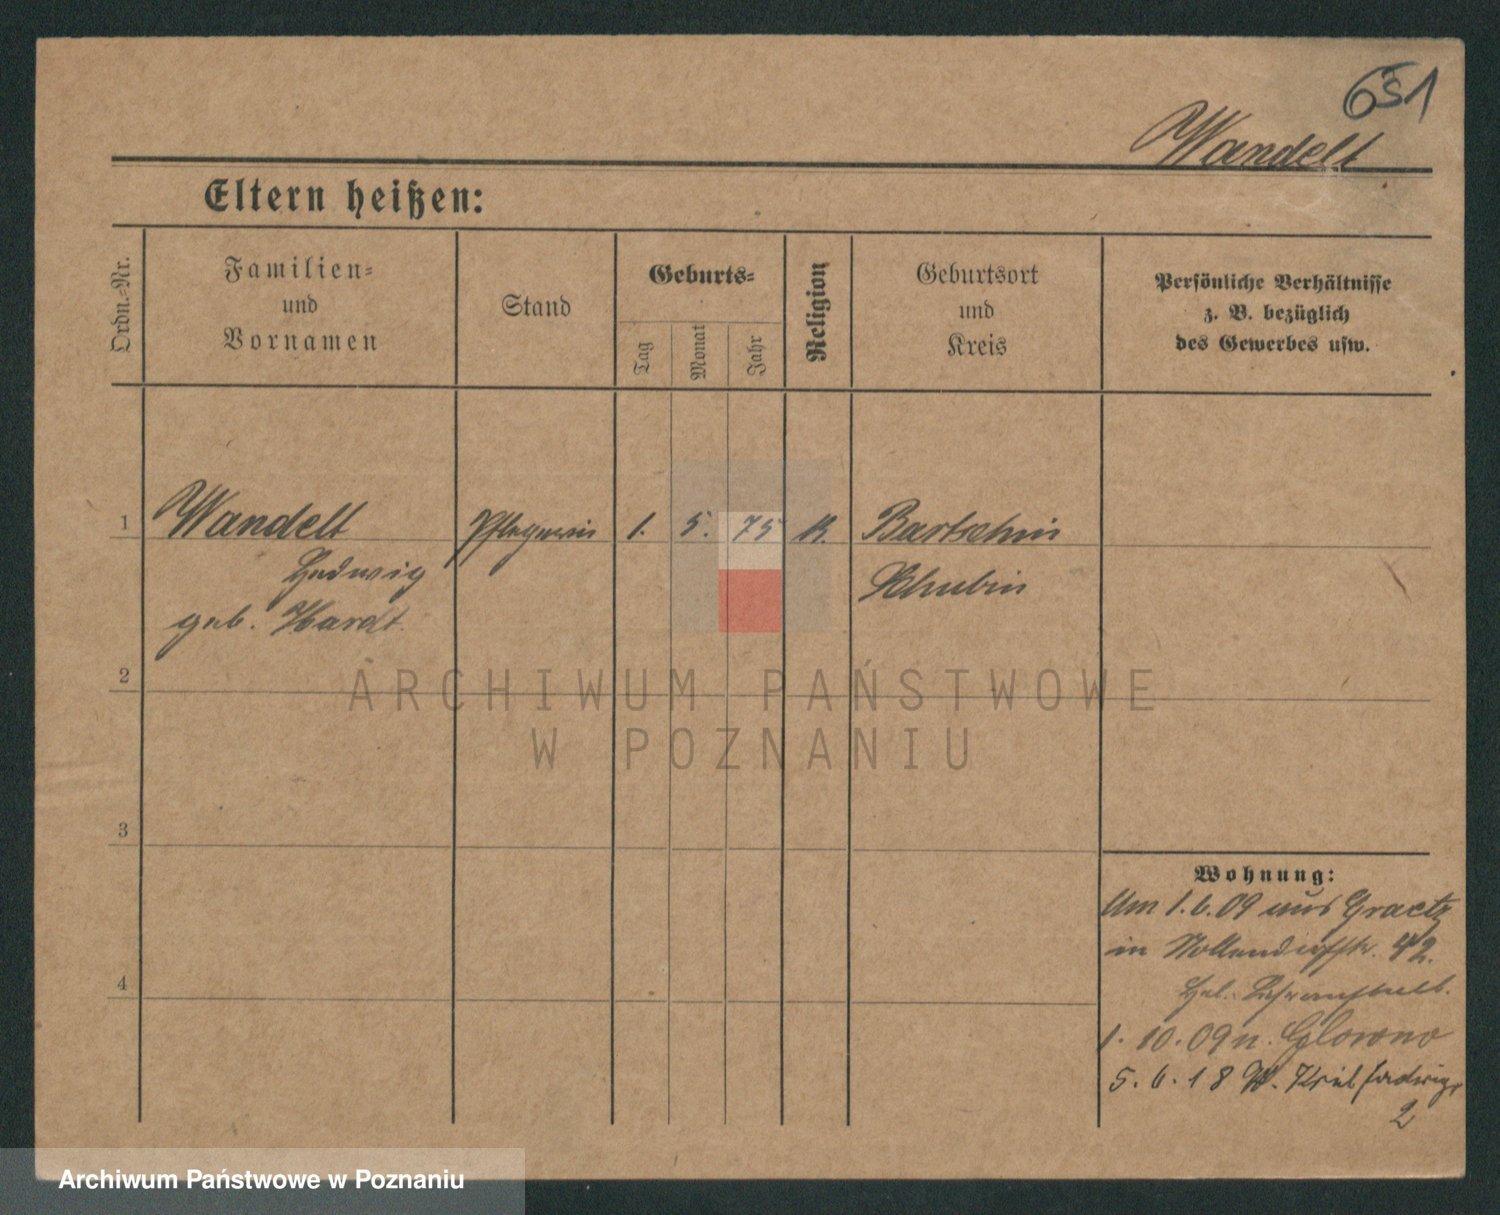 651
Wandelt
Eltern heißen:
Ordn.-Nr.
Familien-
und
Vornamen
Stand
Geburts-
Tag
Monat
Jahr
Religion
Geburtsort
und
Kreis
Persönliche Verhältnisse
z. B. bezüglich
des Gewerbes usw.
1
Wandelt
Hedwig
geb. Hardt
Pflegerin
1. 5. 75
K.
Bartschin
Schubin
2
3
4
Wohnung:
Um 1.6.09 aus Graetz
in Nollendorfstr. 42.
1. 10. 09 n. Glowno
5. 6. 18 W.
2
ARCHIWUM PAŃSTWOWE
W POZNANIU
Archiwum Państwowe w Poznaniu